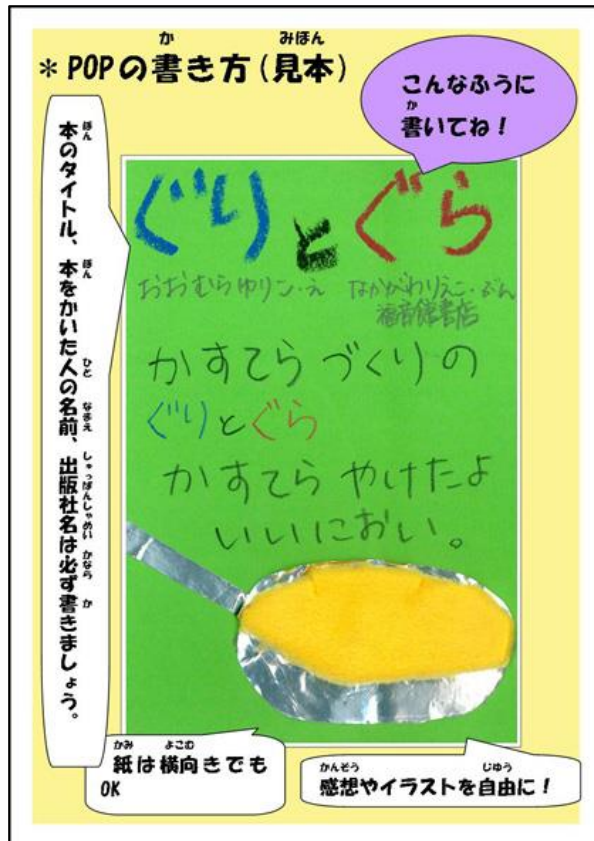 ＊POPの書き方（見本）
こんなふうに
書いてね！
本のタイトル、本をかいた人の名前、出版社名は必ず書きましょう。
ぐりとぐら
おおむらゆりこ・え　なかがわりえこ・ぶん
福音館書店
かすてらづくりの
ぐりとぐら
かすてら やけたよ
いいにおい。
紙は横向きでも
OK
感想やイラストを自由に！